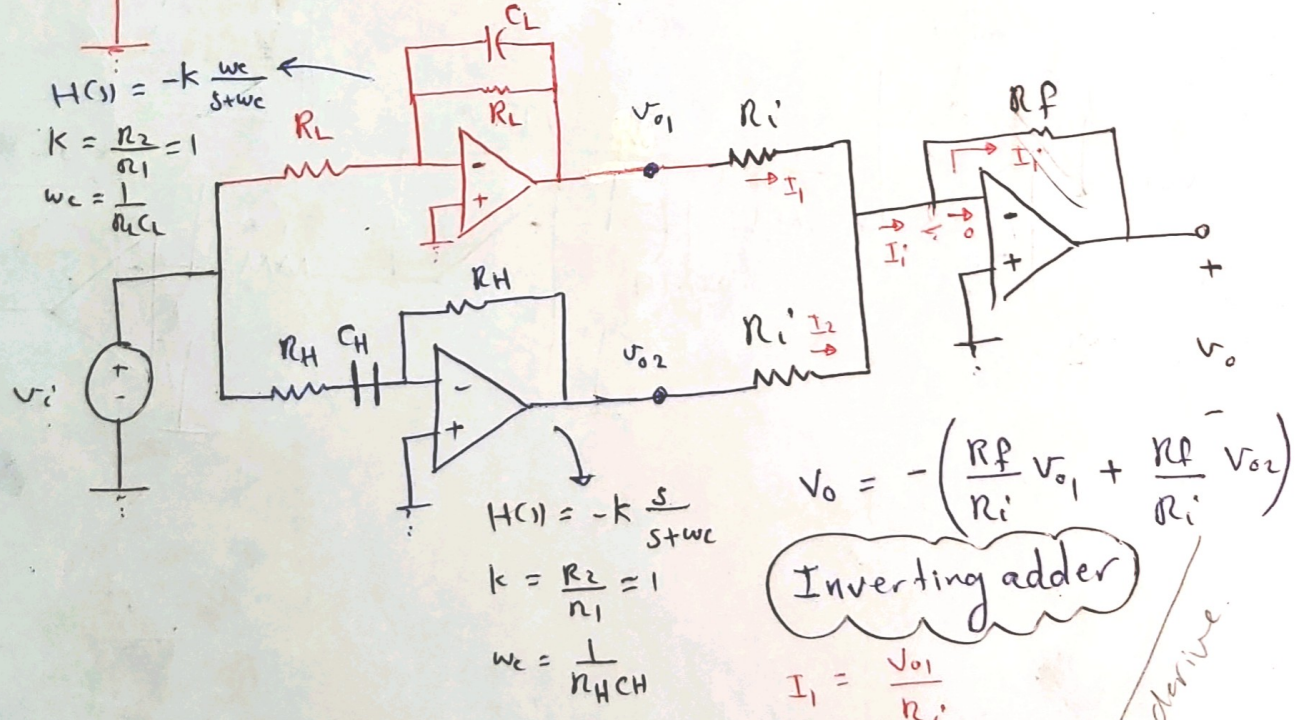 CL
H(s) = -k wc/s+wc
RL
RL
k = R2/R1 = 1
wc = 1/RLCL
-
+
vo1
Ri
I1
Rf
Ii
Ii
0
-
+
+
vo
RH
RH
CH
-
+
vo2
Ri
I2
vi
+
-
H(s) = -k s/s+wc
k = R2/R1 = 1
wc = 1/RHCH
Vo = -(Rf/Ri Vo1 + Rf/Ri Vo2)
-
Inverting adder
I1 = Vo1/Ri
derive